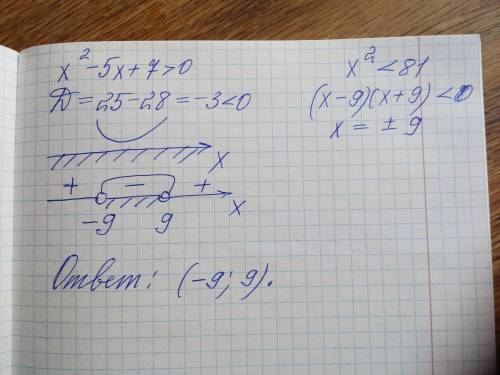 x² - 5x + 7 > 0
Д = 25 - 28 = -3 < 0
x
+ - +
-9 9 x
Ответ: (-9; 9).
x² < 81
(x-9)(x+9) < 0
x = ± 9